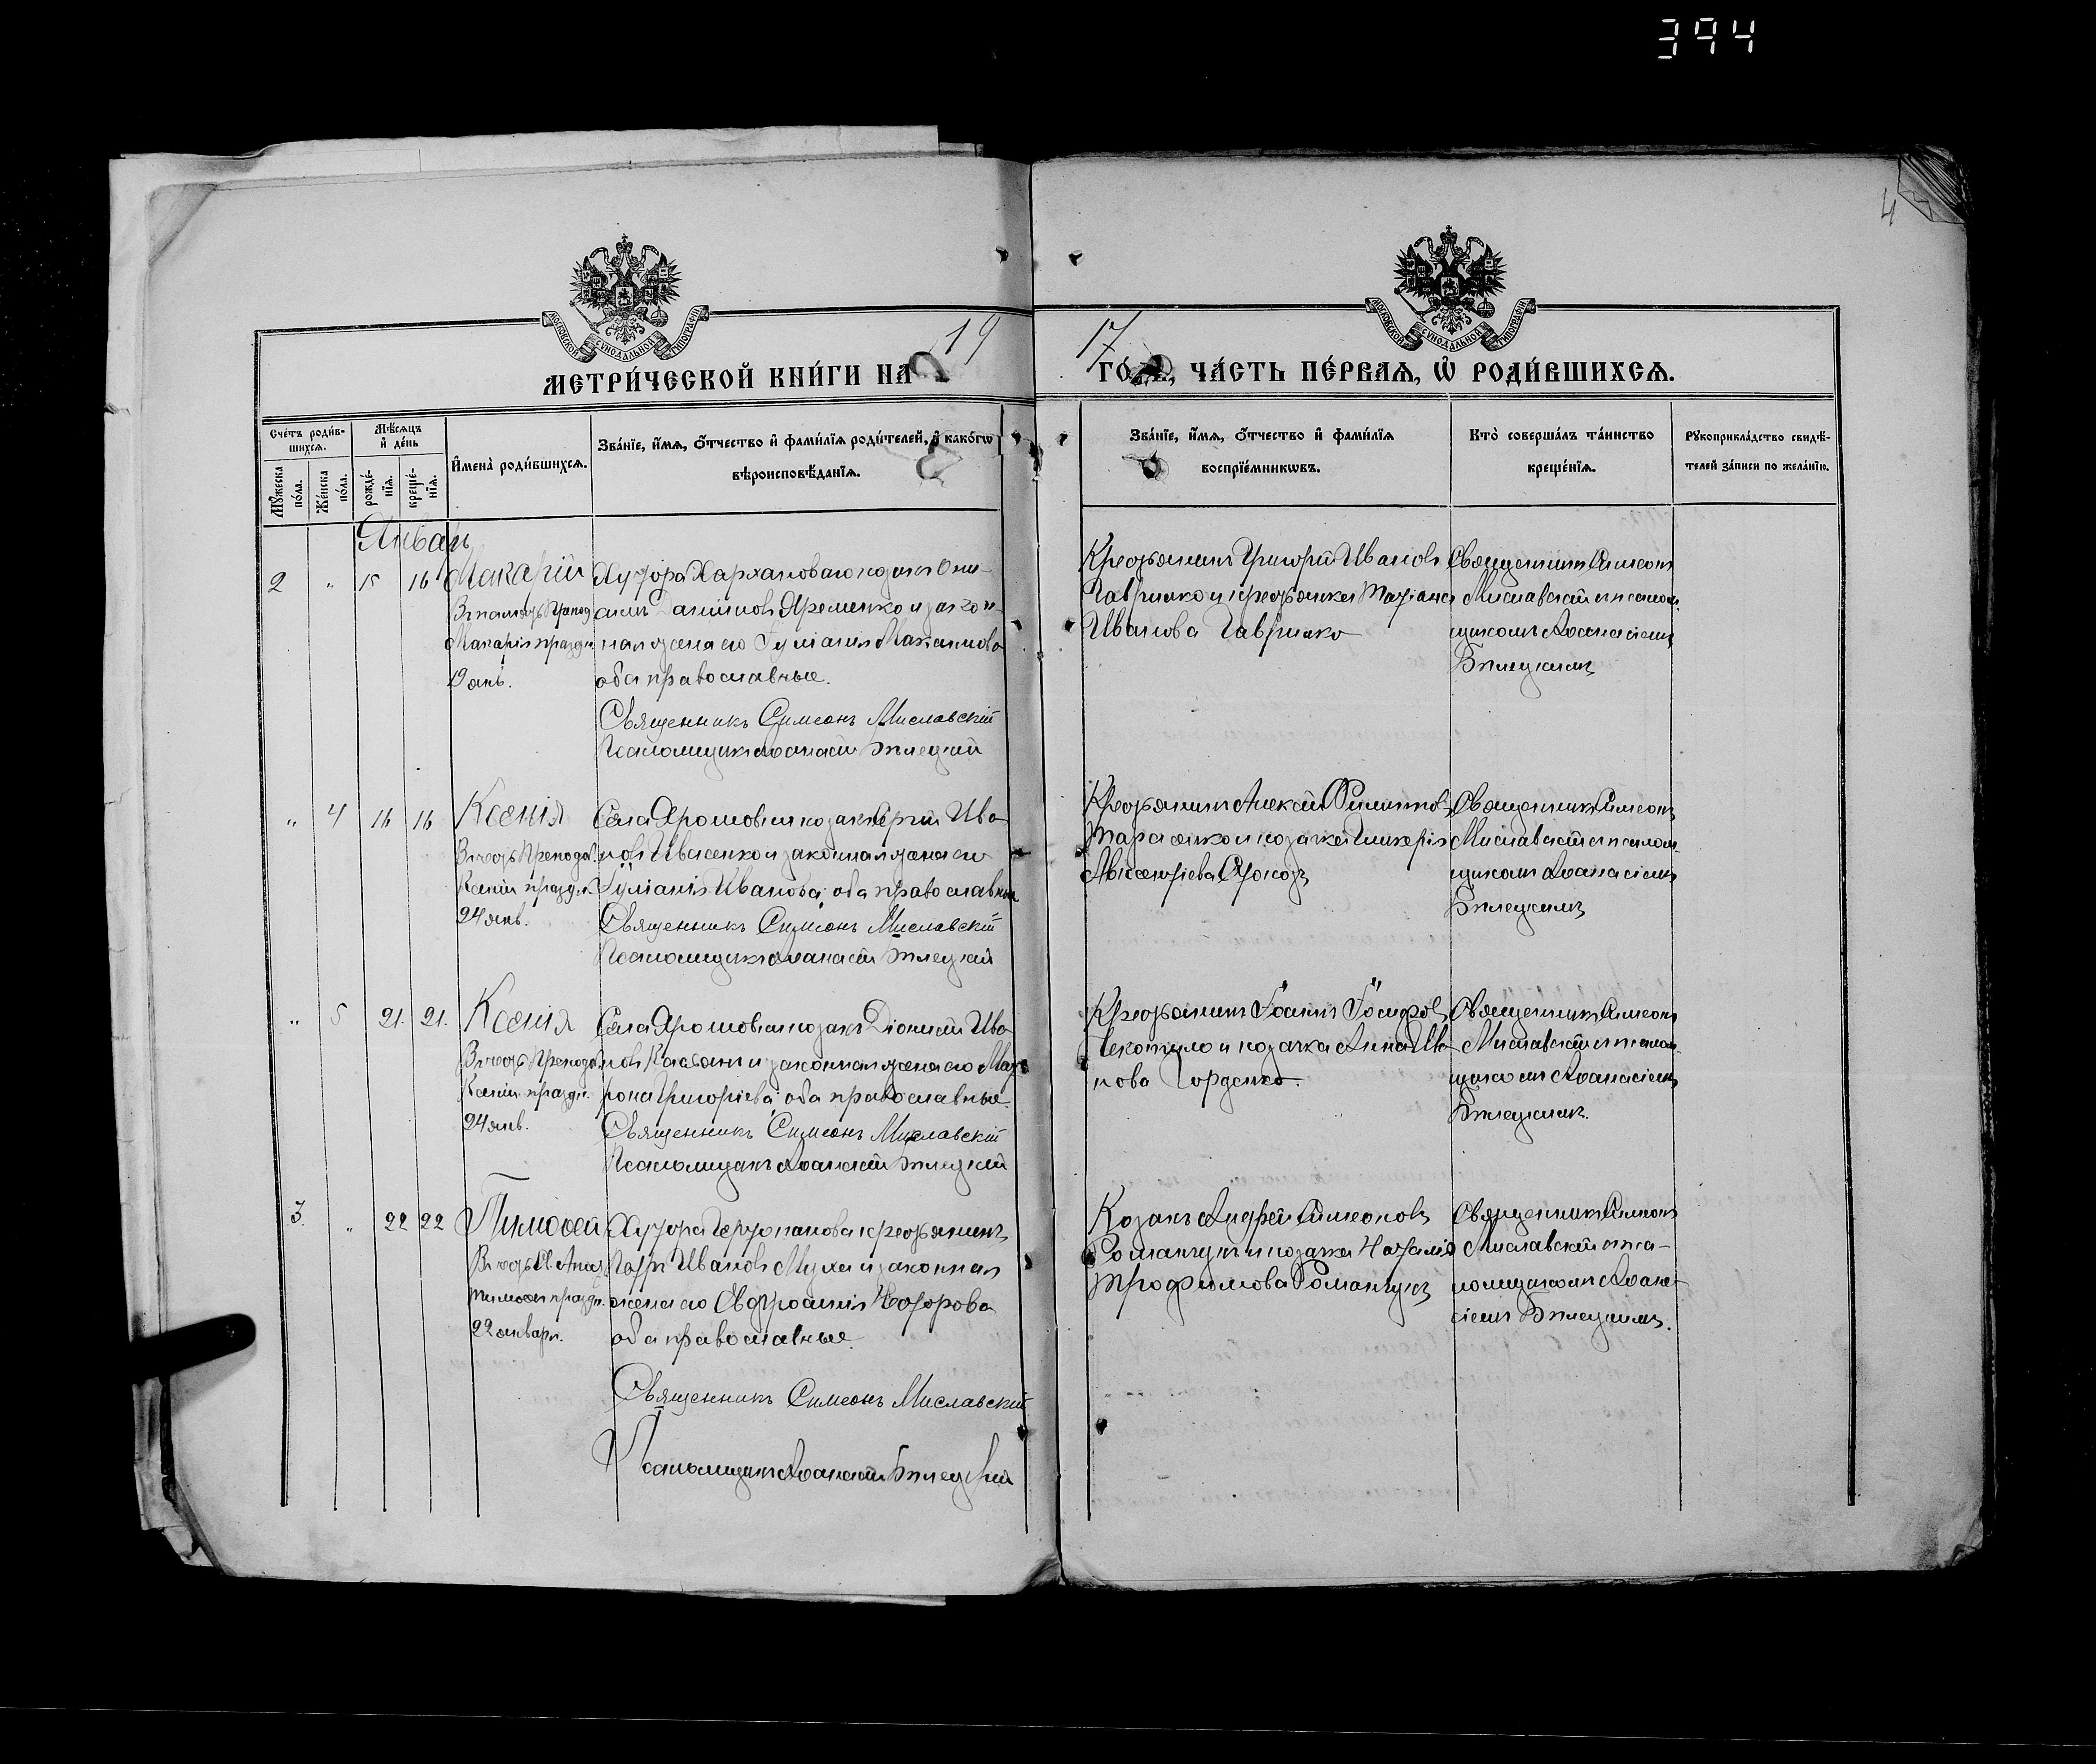 394
4
МОСКОВСКОЙ СѴНОДАЛЬНОЙ ТИПОГРАФІИ
МОСКОВСКОЙ СѴНОДАЛЬНОЙ ТИПОГРАФІИ
19
17
МЕТРИ́ЧЕСКОЙ КНИ́ГИ НА
ГО́ ЧА́СТЬ ПЕ́РВАѦ, Ѡ҆ РОДИ́ВШИХСѦ.
Сче́тъ роди́в-
шихсѧ.
Мѣ́сѧцъ
и҆ де́нь
Мꙋ́жеска
по́ла.
Же́нска
по́ла.
рожде́-
нїѧ.
креще́-
нїѧ.
И҆мена̀ роди́вшихсѧ.
Зва́нїе, и҆́мѧ, ѻ҆́тчество и҆ фами́лїѧ роди́телей, и҆ како́гѡ
вѣроисповѣ́данїѧ.
Зва́нїе, и҆́мѧ, ѻ҆́тчество и҆ фами́лїѧ
воспрїе́мникѡвъ.
Кто̀ соверша́лъ та́инство
креще́нїѧ.
Рꙋкоприкла́дство свидѣ́-
телей за́писи по жела́нїю.
Январь
2 " 15 16 Макарій
Макарія праздн.
19 янв.
Хутора козакъ Они-
симъ Яременко и закон-
ная жена его Іуліанія Максимова
оба православные.
Священникъ Симеонъ Миславскій
Псаломщикъ Аѳанасій Бѣлецкій
Крестьянинъ Григорій Ивановъ
Гавришко и крестьянка
Иванова Гавришко
Священникъ Симеонъ
Миславскій съ псалом-
щикомъ Аѳанасіемъ
Бѣлецкимъ
" 4 16 16 Ксенія
Въ честь Преподоб.
Ксеніи праздн.
24 янв.
Села козакъ Сергій Ива-
новъ Ивасенко и законная жена его
Іуліанія Иванова, оба православные
Священникъ Симеонъ Миславскій
Псаломщикъ Аѳанасій Бѣлецкій
Крестьянинъ Алексій
Тарасенко и козачка Гликерія
Священникъ Симеонъ
Миславскій съ псалом-
щикомъ Аѳанасіемъ
Бѣлецкимъ
" 5 21. 21. Ксенія
Въ честь Преподоб.
Ксеніи праздн.
24 янв.
Села козакъ Діонисій Ива-
новъ и законная жена его Мат-
рона Григоріева, оба православные.
Священникъ Симеонъ Миславскій
Псаломщикъ Аѳанасій Бѣлецкій
Крестьянинъ Іоаннъ Іосифовъ
и козачка Анна Ива-
нова Горденко.
Священникъ Симеонъ
Миславскій съ псалом-
щикомъ Аѳанасіемъ
Бѣлецкимъ.
3. " 22 22 Тимоѳей
Въ честь
Тимоѳея праздн.
22 января.
Хутора крестьянинъ
Петръ Ивановъ Муха и законная
жена его Евфросинія Ѳеодорова
оба православные.
Священникъ Симеонъ Миславскій
Псаломщикъ Аѳанасій Бѣлецкій
Козакъ Андрей Симеоновъ
Романчукъ и козачка Наталія
Трофимова Романчукъ
Священникъ Симеонъ
Миславскій съ пса-
ломщикомъ Аѳана-
сіемъ Бѣлецкимъ.